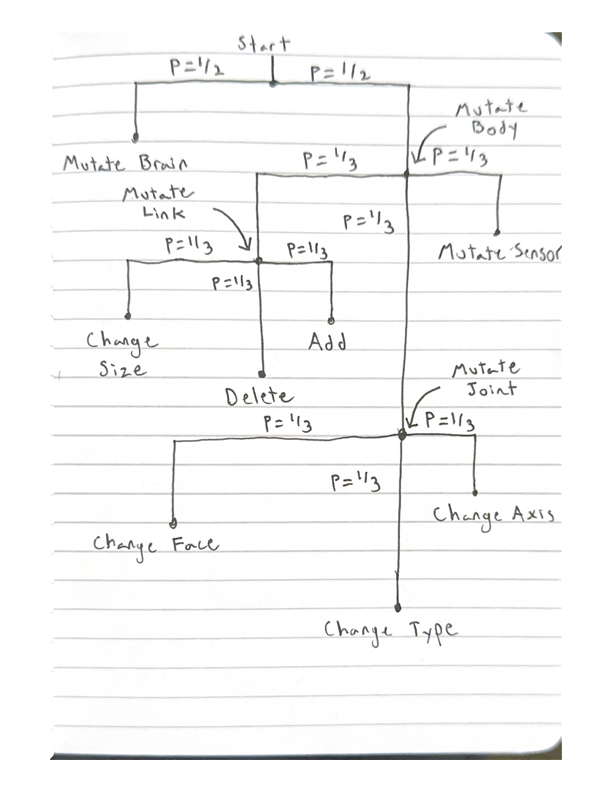 Start
P=1/2 P=1/2
Mutate
Body
Mutate Brain
P=1/3 P=1/3
Mutate
Link
P=1/3
P=1/3 P=1/3
Mutate Sensor
P=1/3
Change
Size
Add
Delete
Mutate
Joint
P=1/3 P=1/3
P=1/3
Change Axis
Change Face
Change Type